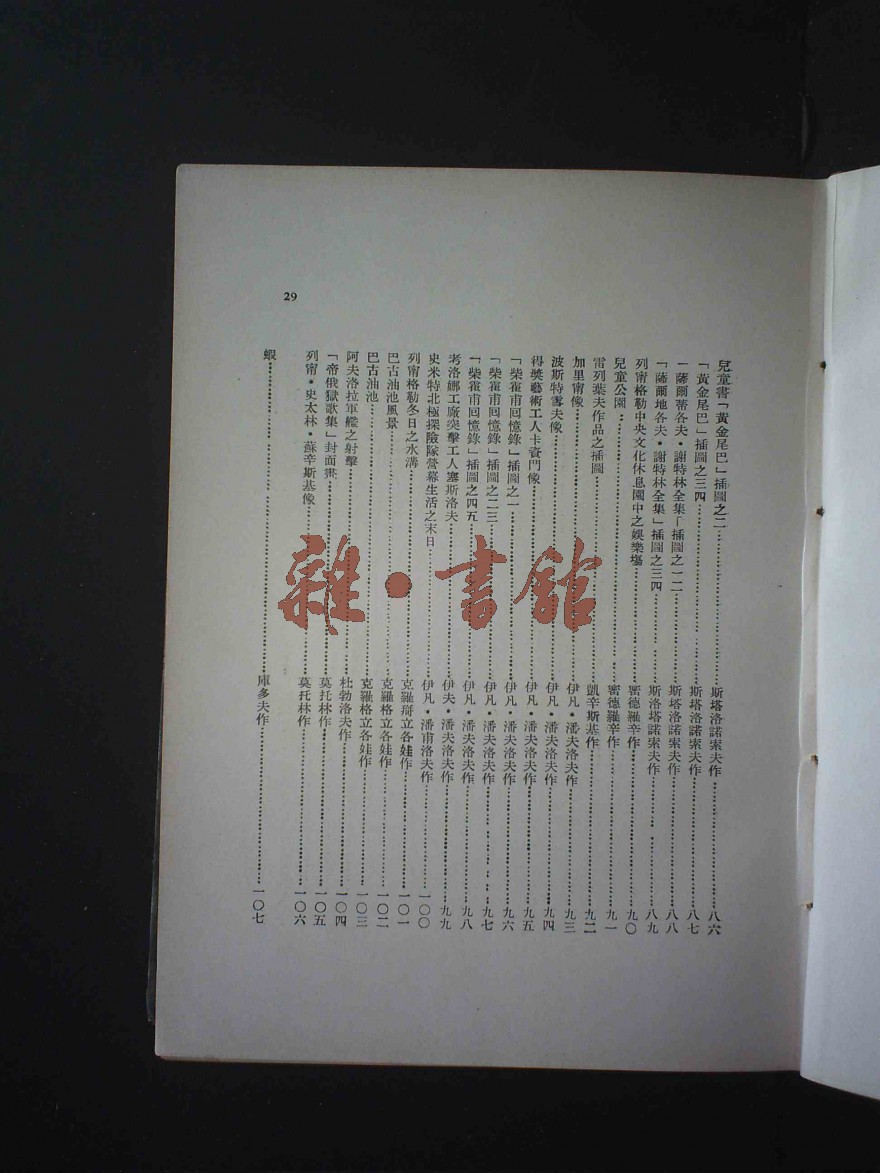 兒童書「黃金尾巴」插圖之二……斯塔洛諾索夫作……八六
「黃金尾巴」插圖之三四……斯塔洛諾索夫作……八七
「薩爾蒂各夫・謝特林全集」插圖之一二……斯塔洛諾索夫作……八八
「薩爾地各夫・謝特林全集」插圖之三四……斯洛塔諾索夫作……八九
列甯格勒中央文化休息園中之娛樂塲……密德羅辛作……九〇
兒童公園……密德羅辛作……九一
雷列葉夫作品之插圖……凱辛斯基作……九二
加里甯像……伊凡・潘夫洛夫作……九三
波斯特雪夫像……伊凡・潘夫洛夫作……九四
得獎藝術工人卡資門像……伊凡・潘夫洛夫作……九五
「柴霍甫回憶錄」插圖之一……伊凡・潘夫洛夫作……九六
「柴霍甫回憶錄」插圖之二三……伊凡・潘夫洛夫作……九七
「柴霍甫回憶錄」插圖之四五……伊凡・潘夫洛夫作……九八
考洛娜工廠突擊工人塞斯洛夫……伊夫・潘夫洛夫作……九九
史米特北極探險隊營幕生活之末日……伊凡・潘甫洛夫作……一〇〇
列甯格勒冬日之水溝……克羅格立各娃作……一〇一
巴古油池風景……克羅格立各娃作……一〇二
巴古油池……克羅格立各娃作……一〇三
阿夫洛拉軍艦之射擊……杜勃洛夫作……一〇四
「帝俄獄歌集」封面畫……莫托林作……一〇五
列甯・史太林・蘇辛斯基像……莫托林作……一〇六
蝦……庫多夫作……一〇七
29
雜・書館